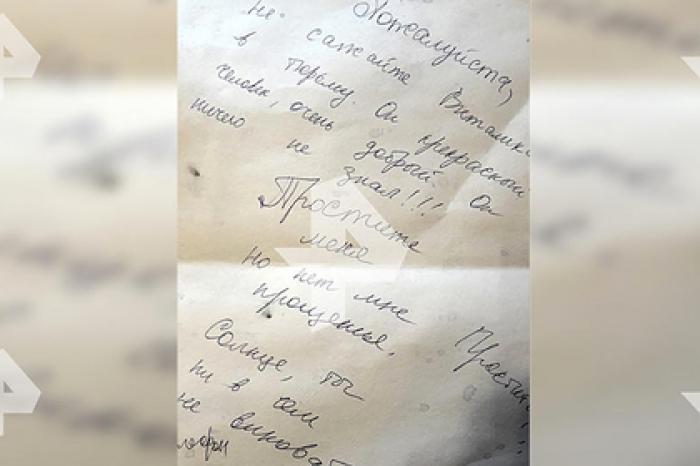 Пожалуйста,
не сажайте Виталика
в тюрьму. Он прекрасный
человек, очень добрый. Он
ничего не знал!!!
Простите
меня
но нет мне
прощенья.
Простите
Солнце, ты
ни в чем
не виноват